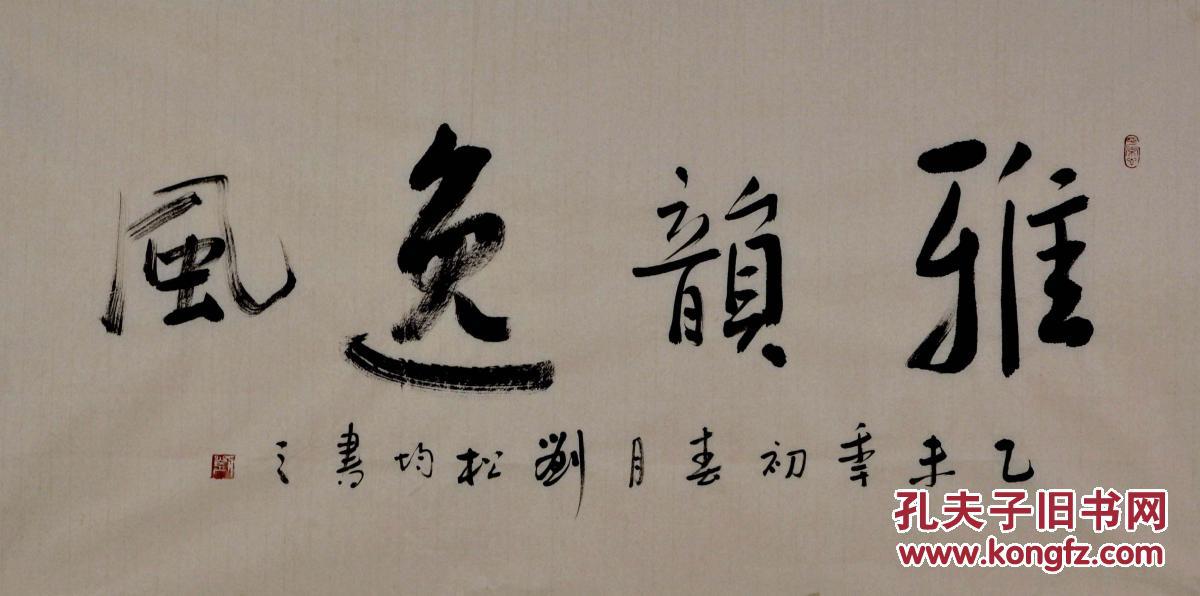 雅韻逸風
乙未年初春月劉松均書之
孔夫子旧书网
www.kongfz.com